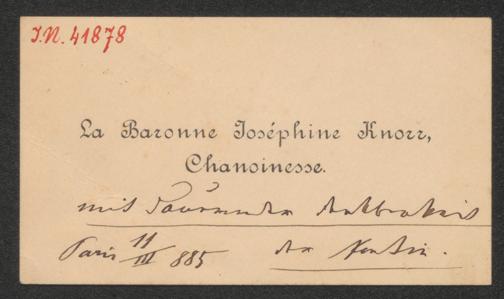 I.N. 41878
La Baronne Joséphine Knorr,
Chanoinesse.
mit
Paris 11/III 885 der